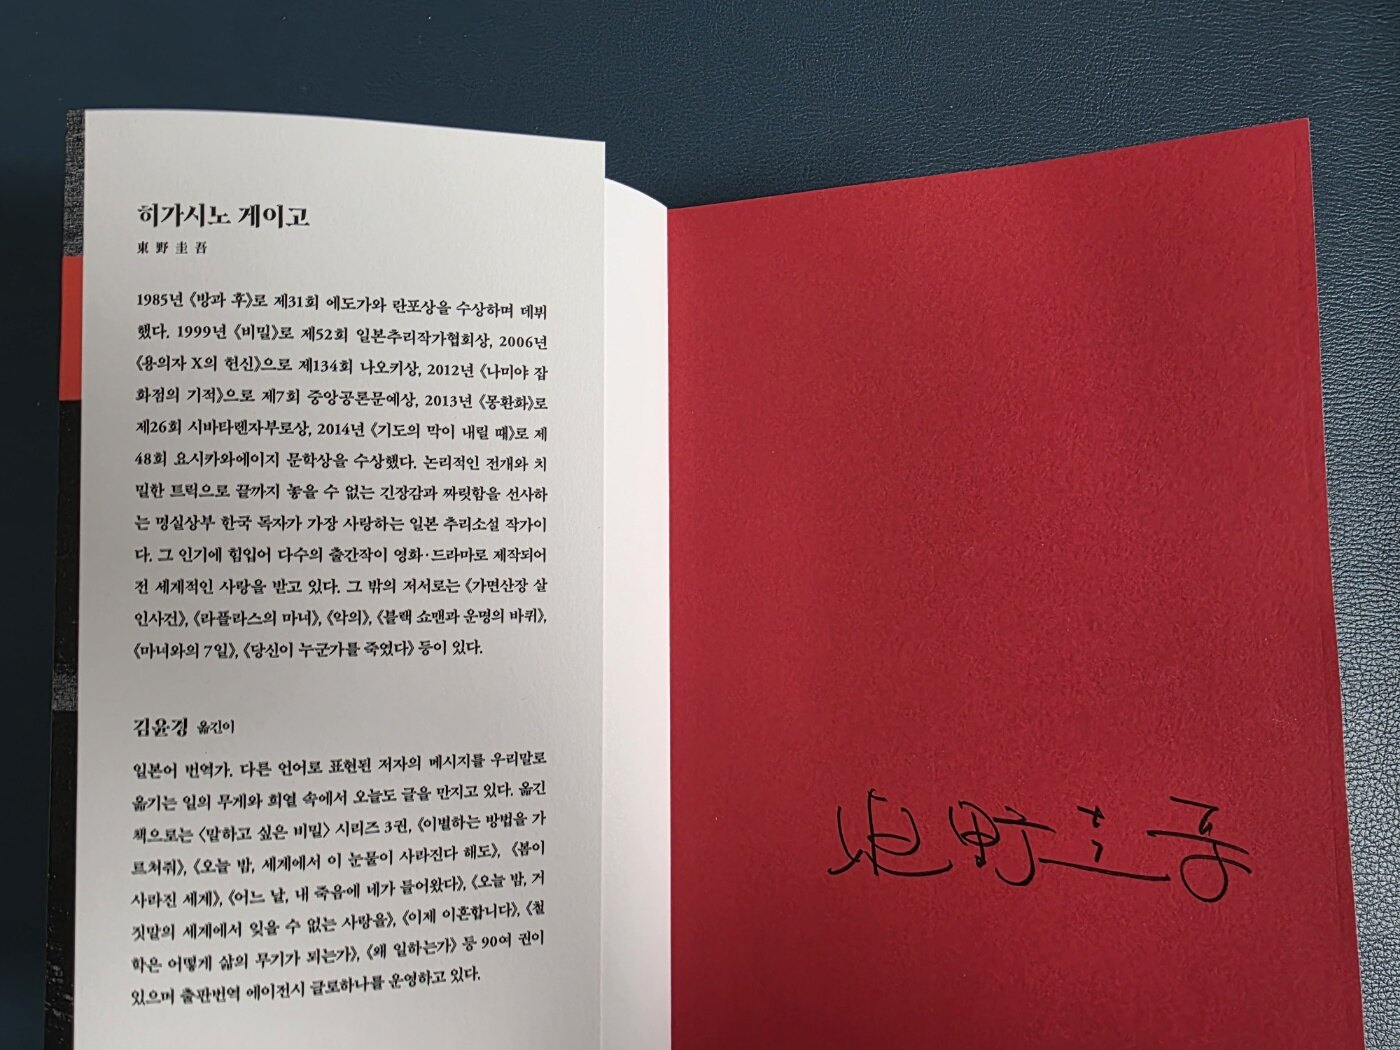 히가시노 게이고
東野圭吾
1985년 《방과 후》로 제31회 에도가와 란포상을 수상하며 데뷔
했다. 1999년 《비밀》로 제52회 일본추리작가협회상, 2006년
《용의자 X의 헌신》으로 제134회 나오키상, 2012년 《나미야 잡
화점의 기적》으로 제7회 중앙공론문예상, 2013년 《몽환화》로
제26회 시바타렌자부로상, 2014년 《기도의 막이 내릴 때》로 제
48회 요시카와에이지 문학상을 수상했다. 논리적인 전개와 치
밀한 트릭으로 끝까지 놓을 수 없는 긴장감과 짜릿함을 선사하
는 명실상부 한국 독자가 가장 사랑하는 일본 추리소설 작가이
다. 그 인기에 힘입어 다수의 출간작이 영화·드라마로 제작되어
전 세계적인 사랑을 받고 있다. 그 밖의 저서로는 《가면산장 살
인사건》, 《라플라스의 마녀》, 《악의》, 《블랙 쇼맨과 운명의 바퀴》,
《마녀와의 7일》, 《당신이 누군가를 죽였다》 등이 있다.
김윤경 옮긴이
일본어 번역가. 다른 언어로 표현된 저자의 메시지를 우리말로
옮기는 일의 무게와 희열 속에서 오늘도 글을 만지고 있다. 옮긴
책으로는 〈말하고 싶은 비밀〉 시리즈 3권, 《이별하는 방법을 가
르쳐줘》, 《오늘 밤, 세계에서 이 눈물이 사라진다 해도》, 《봄이
사라진 세계》, 《어느 날, 내 죽음에 네가 들어왔다》, 《오늘 밤, 거
짓말의 세계에서 잊을 수 없는 사랑을》, 《이제 이혼합니다》, 《철
학은 어떻게 삶의 무기가 되는가》, 《왜 일하는가》 등 90여 권이
있으며 출판번역 에이전시 글로하나를 운영하고 있다.
東野圭吾